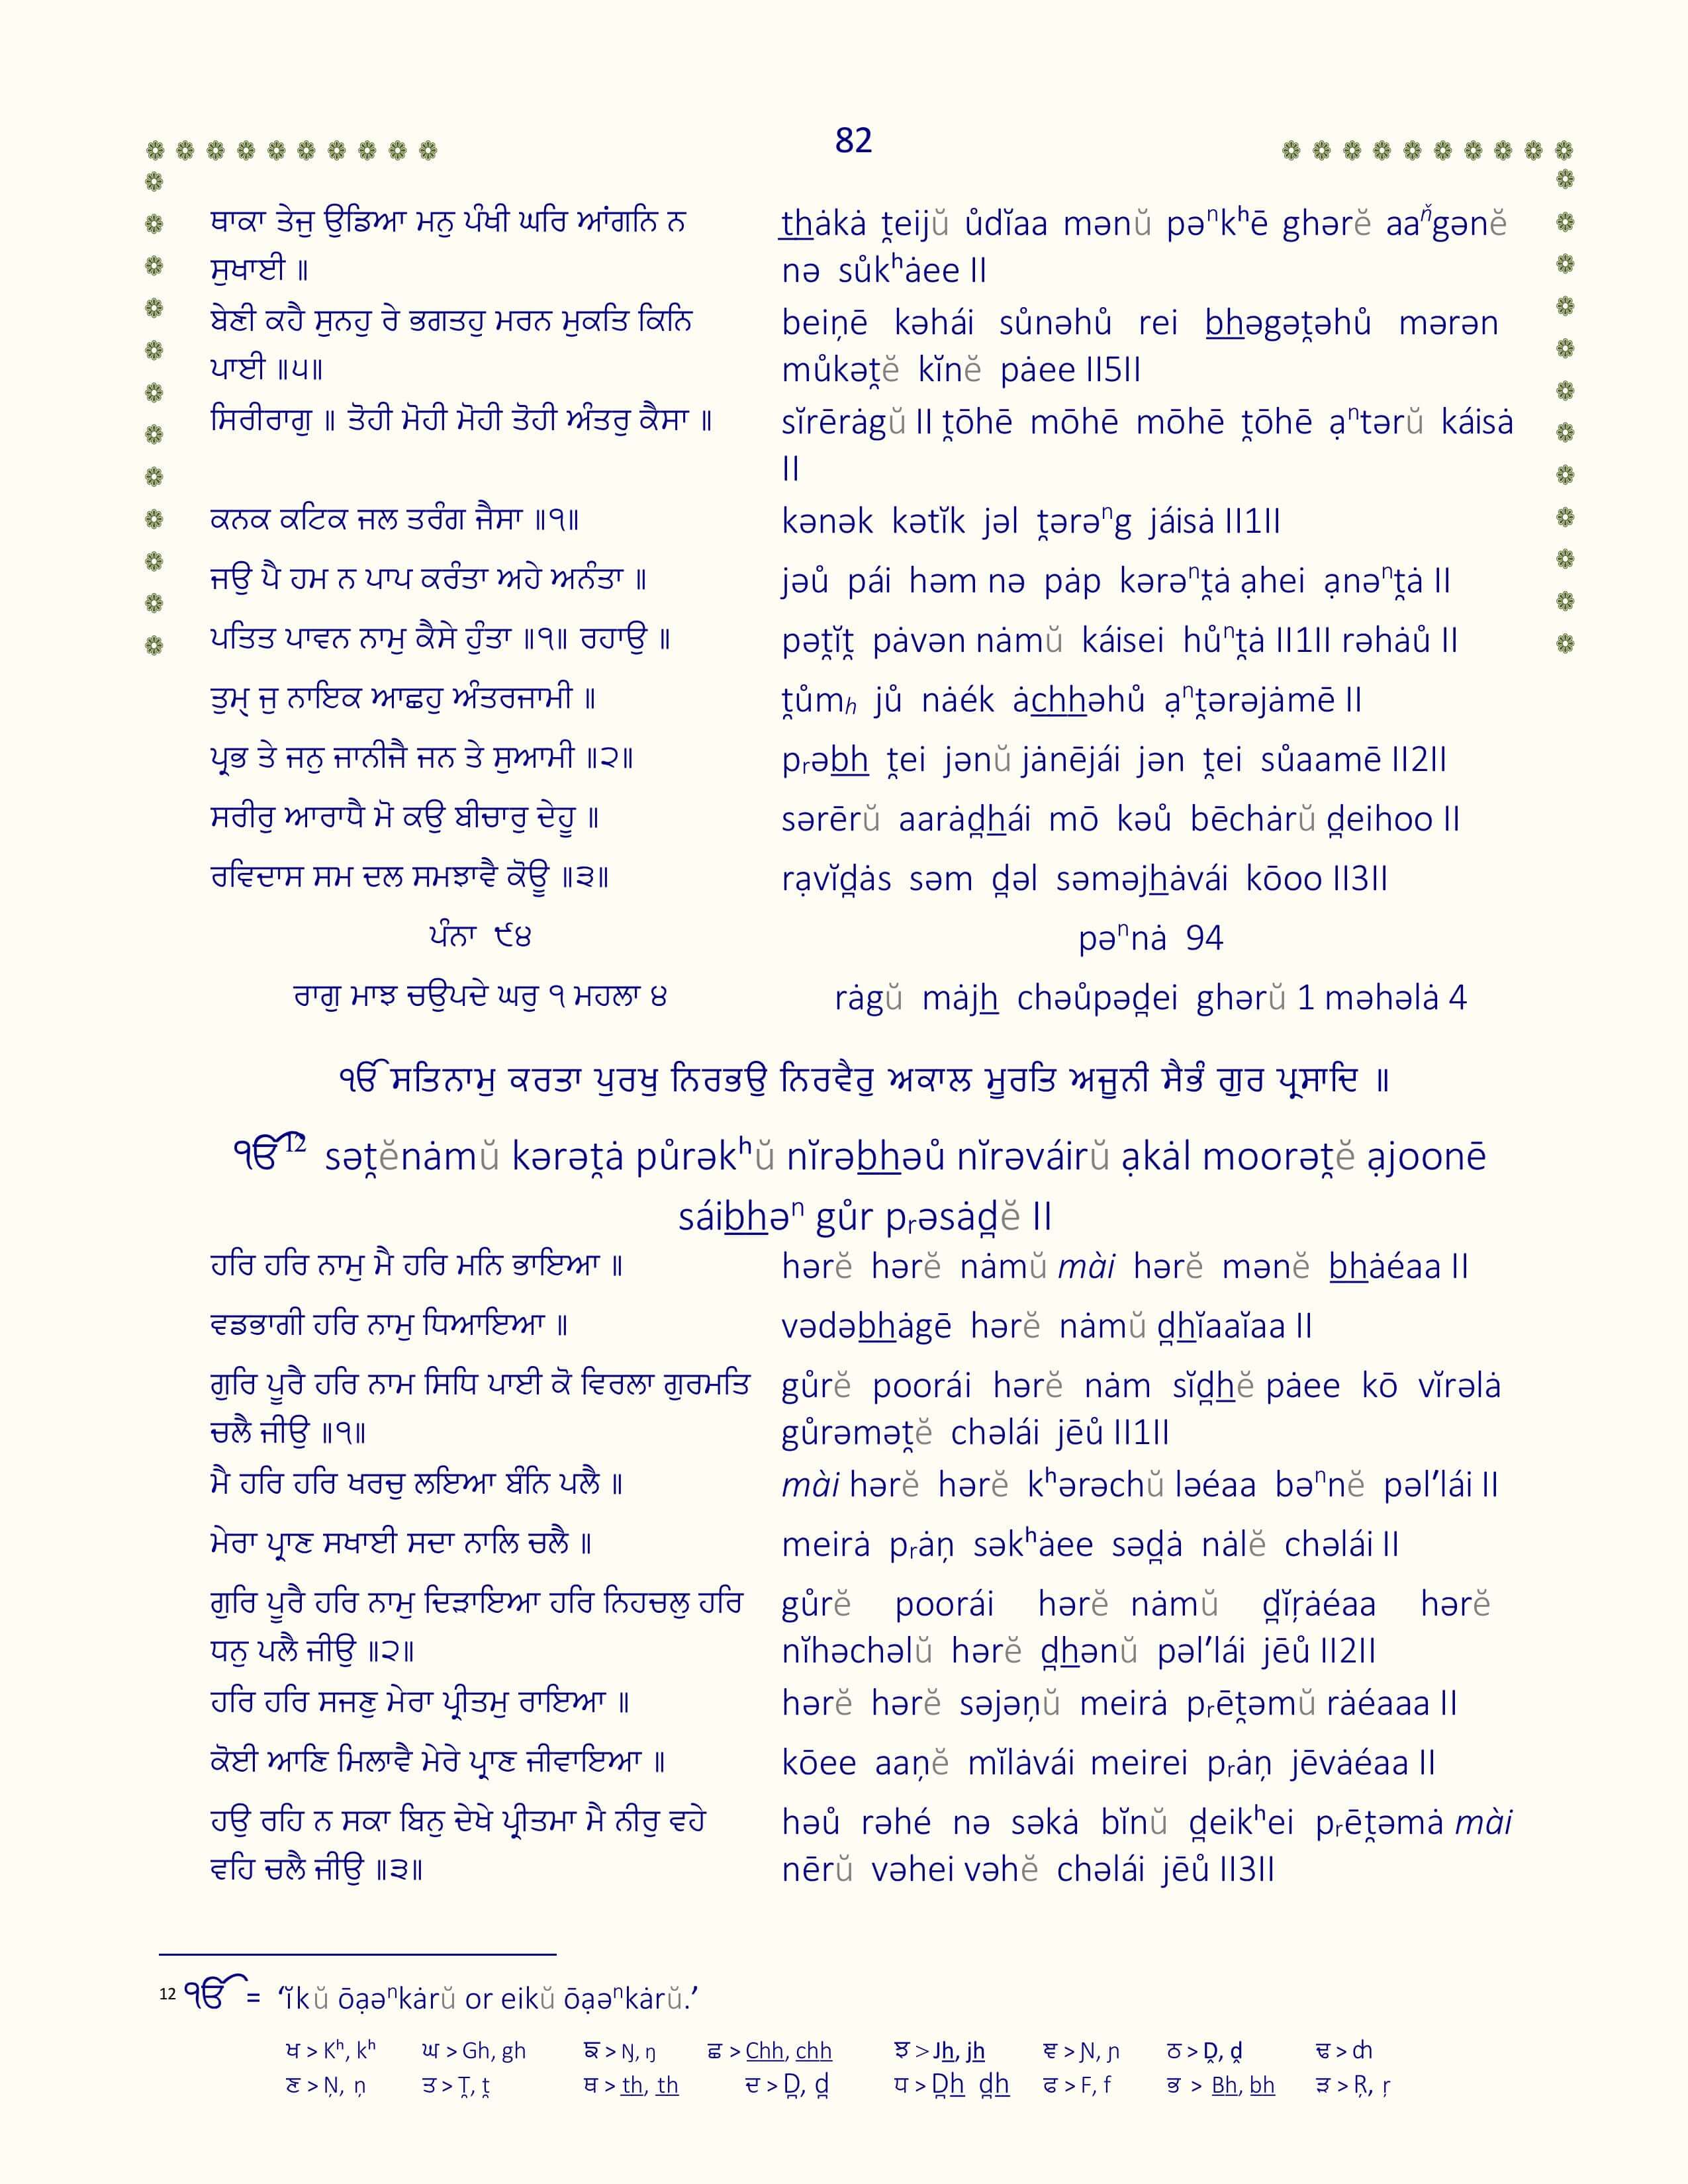 82
ਥਾਕਾ ਤੇਜੁ ਉਡਿਆ ਮਨੁ ਪੰਖੀ ਘਰਿ ਆਂਗਨਿ ਨ
ਸੁਖਾਈ ॥
t͟hȧkȧ t̯eijŭ ůdĭaa mənŭ pəⁿkʰē ghərĕ aaⁿ̌gənĕ
nə sůkʰȧee II
ਬੇਣੀ ਕਹੈ ਸੁਨਹੁ ਰੇ ਭਗਤਹੁ ਮਰਨ ਮੁਕਤਿ ਕਿਨਿ
ਪਾਈ ॥੫॥
beiṇē kəhái sůnəhů rei b͟həgət̯əhů mərən
můkət̯ĕ kĭnĕ pȧee II5II
ਸਿਰੀਰਾਗੁ ॥ ਤੋਹੀ ਮੋਹੀ ਮੋਹੀ ਤੋਹੀ ਅੰਤਰੁ ਕੈਸਾ ॥
sĭrērȧgŭ II t̯ōhē mōhē mōhē t̯ōhē ạⁿtərŭ káisȧ
II
ਕਨਕ ਕਟਿਕ ਜਲ ਤਰੰਗ ਜੈਸਾ ॥੧॥
kənək kətĭk jəl t̯ərəⁿg jáisȧ II1II
ਜਉ ਪੈ ਹਮ ਨ ਪਾਪ ਕਰੰਤਾ ਅਹੇ ਅਨੰਤਾ ॥
jəů pái həm nə pȧp kərəⁿt̯ȧ ạhei ạnəⁿt̯ȧ II
ਪਤਿਤ ਪਾਵਨ ਨਾਮੁ ਕੈਸੇ ਹੁੰਤਾ ॥੧॥ ਰਹਾਉ ॥
pət̯ĭt̯ pȧvən nȧmŭ káisei hůⁿt̯ȧ II1II rəhȧů II
ਤੁਮ੍ ਜੁ ਨਾਇਕ ਆਛਹੁ ਅੰਤਰਜਾਮੀ ॥
t̯ůmₕ jů nȧék ȧc͟h͟həhů ạⁿt̯ərəjȧmē II
ਪ੍ਰਭ ਤੇ ਜਨੁ ਜਾਨੀਜੈ ਜਨ ਤੇ ਸੁਆਮੀ ॥੨॥
pᵣəb͟h t̯ei jənŭ jȧnējái jən t̯ei sůaamē II2II
ਸਰੀਰੁ ਆਰਾਧੈ ਮੋ ਕਉ ਬੀਚਾਰੁ ਦੇਹੂ ॥
sərērŭ aarȧd̪͟hái mō kəů bēchȧrŭ d̪eihoo II
ਰਵਿਦਾਸ ਸਮ ਦਲ ਸਮਝਾਵੈ ਕੋਊ ॥੩॥
rạvĭd̪ȧs səm d̪əl səməjẖȧvái kōoo II3II
ਪੰਨਾ ੯੪
pəⁿnȧ 94
ਰਾਗੁ ਮਾਝ ਚਉਪਦੇ ਘਰੁ ੧ ਮਹਲਾ ੪
rȧgŭ mȧjẖ chəůpəd̪ei ghərŭ 1 məhəlȧ 4
ੴ ਸਤਿਨਾਮੁ ਕਰਤਾ ਪੁਰਖੁ ਨਿਰਭਉ ਨਿਰਵੈਰੁ ਅਕਾਲ ਮੂਰਤਿ ਅਜੂਨੀ ਸੈਭੰ ਗੁਰ ਪ੍ਰਸਾਦਿ ॥
ੴ¹² sət̯ĕnȧmŭ kərət̯ȧ půrəkʰŭ nĭrəb͟həů nĭrəváirŭ ạkȧl moorət̯ĕ ạjoonē
sáib͟həⁿ gůr pᵣəsȧd̪ĕ II
ਹਰਿ ਹਰਿ ਨਾਮੁ ਮੈ ਹਰਿ ਮਨਿ ਭਾਇਆ ॥
hərĕ hərĕ nȧmŭ mài hərĕ mənĕ b͟hȧéaa II
ਵਡਭਾਗੀ ਹਰਿ ਨਾਮੁ ਧਿਆਇਆ ॥
vədəb͟hȧgē hərĕ nȧmŭ d̪͟hĭaaĭaa II
ਗੁਰਿ ਪੂਰੈ ਹਰਿ ਨਾਮ ਸਿਧਿ ਪਾਈ ਕੋ ਵਿਰਲਾ ਗੁਰਮਤਿ
ਚਲੈ ਜੀਉ ॥੧॥
gůrĕ poorái hərĕ nȧm sĭd̪͟hĕ pȧee kō vĭrəlȧ
gůrəmət̯ĕ chəlái jēů II1II
ਮੈ ਹਰਿ ਹਰਿ ਖਰਚੁ ਲਇਆ ਬੰਨਿ ਪਲੈ ॥
mài hərĕ hərĕ kʰərəchŭ ləéaa bəⁿnĕ pəl′lái II
ਮੇਰਾ ਪ੍ਰਾਣ ਸਖਾਈ ਸਦਾ ਨਾਲਿ ਚਲੈ ॥
meirȧ pᵣȧṇ səkʰȧee səd̪ȧ nȧlĕ chəlái II
ਗੁਰਿ ਪੂਰੈ ਹਰਿ ਨਾਮੁ ਦਿੜਾਇਆ ਹਰਿ ਨਿਹਚਲੁ ਹਰਿ
ਧਨੁ ਪਲੈ ਜੀਉ ॥੨॥
gůrĕ poorái hərĕ nȧmŭ d̪ĭṛȧéaa hərĕ
nĭhəchəlŭ hərĕ d̪͟hənŭ pəl′lái jēů II2II
ਹਰਿ ਹਰਿ ਸਜਣੁ ਮੇਰਾ ਪ੍ਰੀਤਮੁ ਰਾਇਆ ॥
hərĕ hərĕ səjəṇŭ meirȧ pᵣēt̯əmŭ rȧéaaa II
ਕੋਈ ਆਣਿ ਮਿਲਾਵੈ ਮੇਰੇ ਪ੍ਰਾਣ ਜੀਵਾਇਆ ॥
kōee aaṇĕ mĭlȧvái meirei pᵣȧṇ jēvȧéaa II
ਹਉ ਰਹਿ ਨ ਸਕਾ ਬਿਨੁ ਦੇਖੇ ਪ੍ਰੀਤਮਾ ਮੈ ਨੀਰੁ ਵਹੇ
ਵਹਿ ਚਲੈ ਜੀਉ ॥੩॥
həů rəhé nə səkȧ bĭnŭ d̪eikʰei pᵣēt̯əmȧ mài
nērŭ vəhei vəhĕ chəlái jēů II3II
12 ੴ = ‘ĭkŭ ōạəⁿkȧrŭ or eikŭ ōạəⁿkȧrŭ.’
ਖ > Kʰ, kʰ ਘ > Gh, gh ਙ > Ŋ, ŋ ਛ > C͟h͟h, c͟h͟h ਝ > Jẖ, jẖ ਞ > Ɲ, ɲ ਠ > D̯, d̯ ਢ > ȸ
ਣ > Ṇ, ṇ ਤ > T̯, t̯ ਥ > t͟h, t͟h ਦ > D̪, d̪ ਧ > D̪͟h d̪͟h ਫ > F, f ਭ > B͟h, b͟h ੜ > Ṛ, ṛ